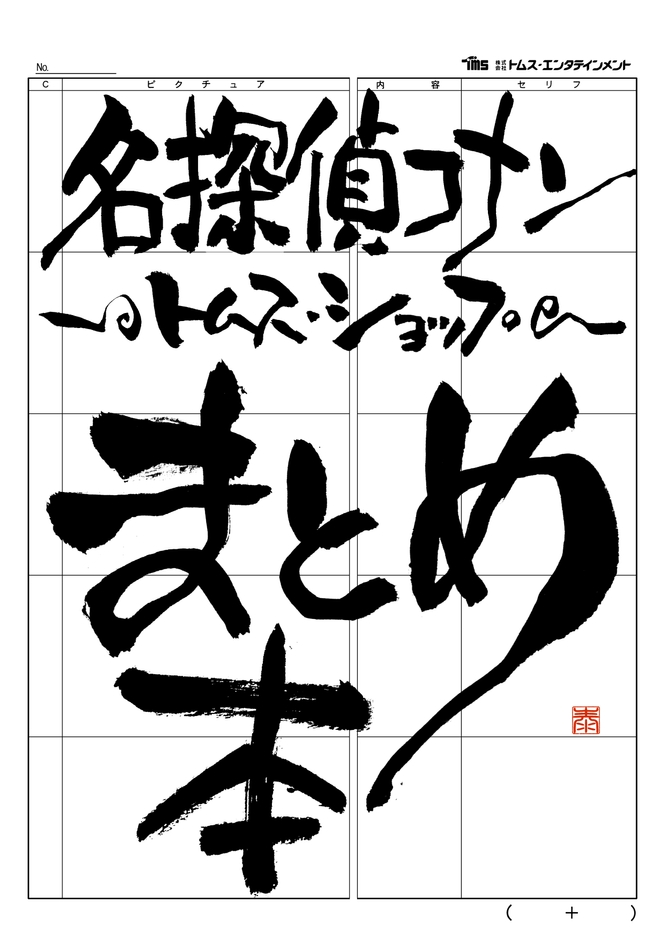 No.
TMS 株式会社 トムス・エンタテインメント
C ピクチュア 内容 セリフ
名探偵コナン
〜トムス・ショップ。〜
まとめ
本
泰
( + )